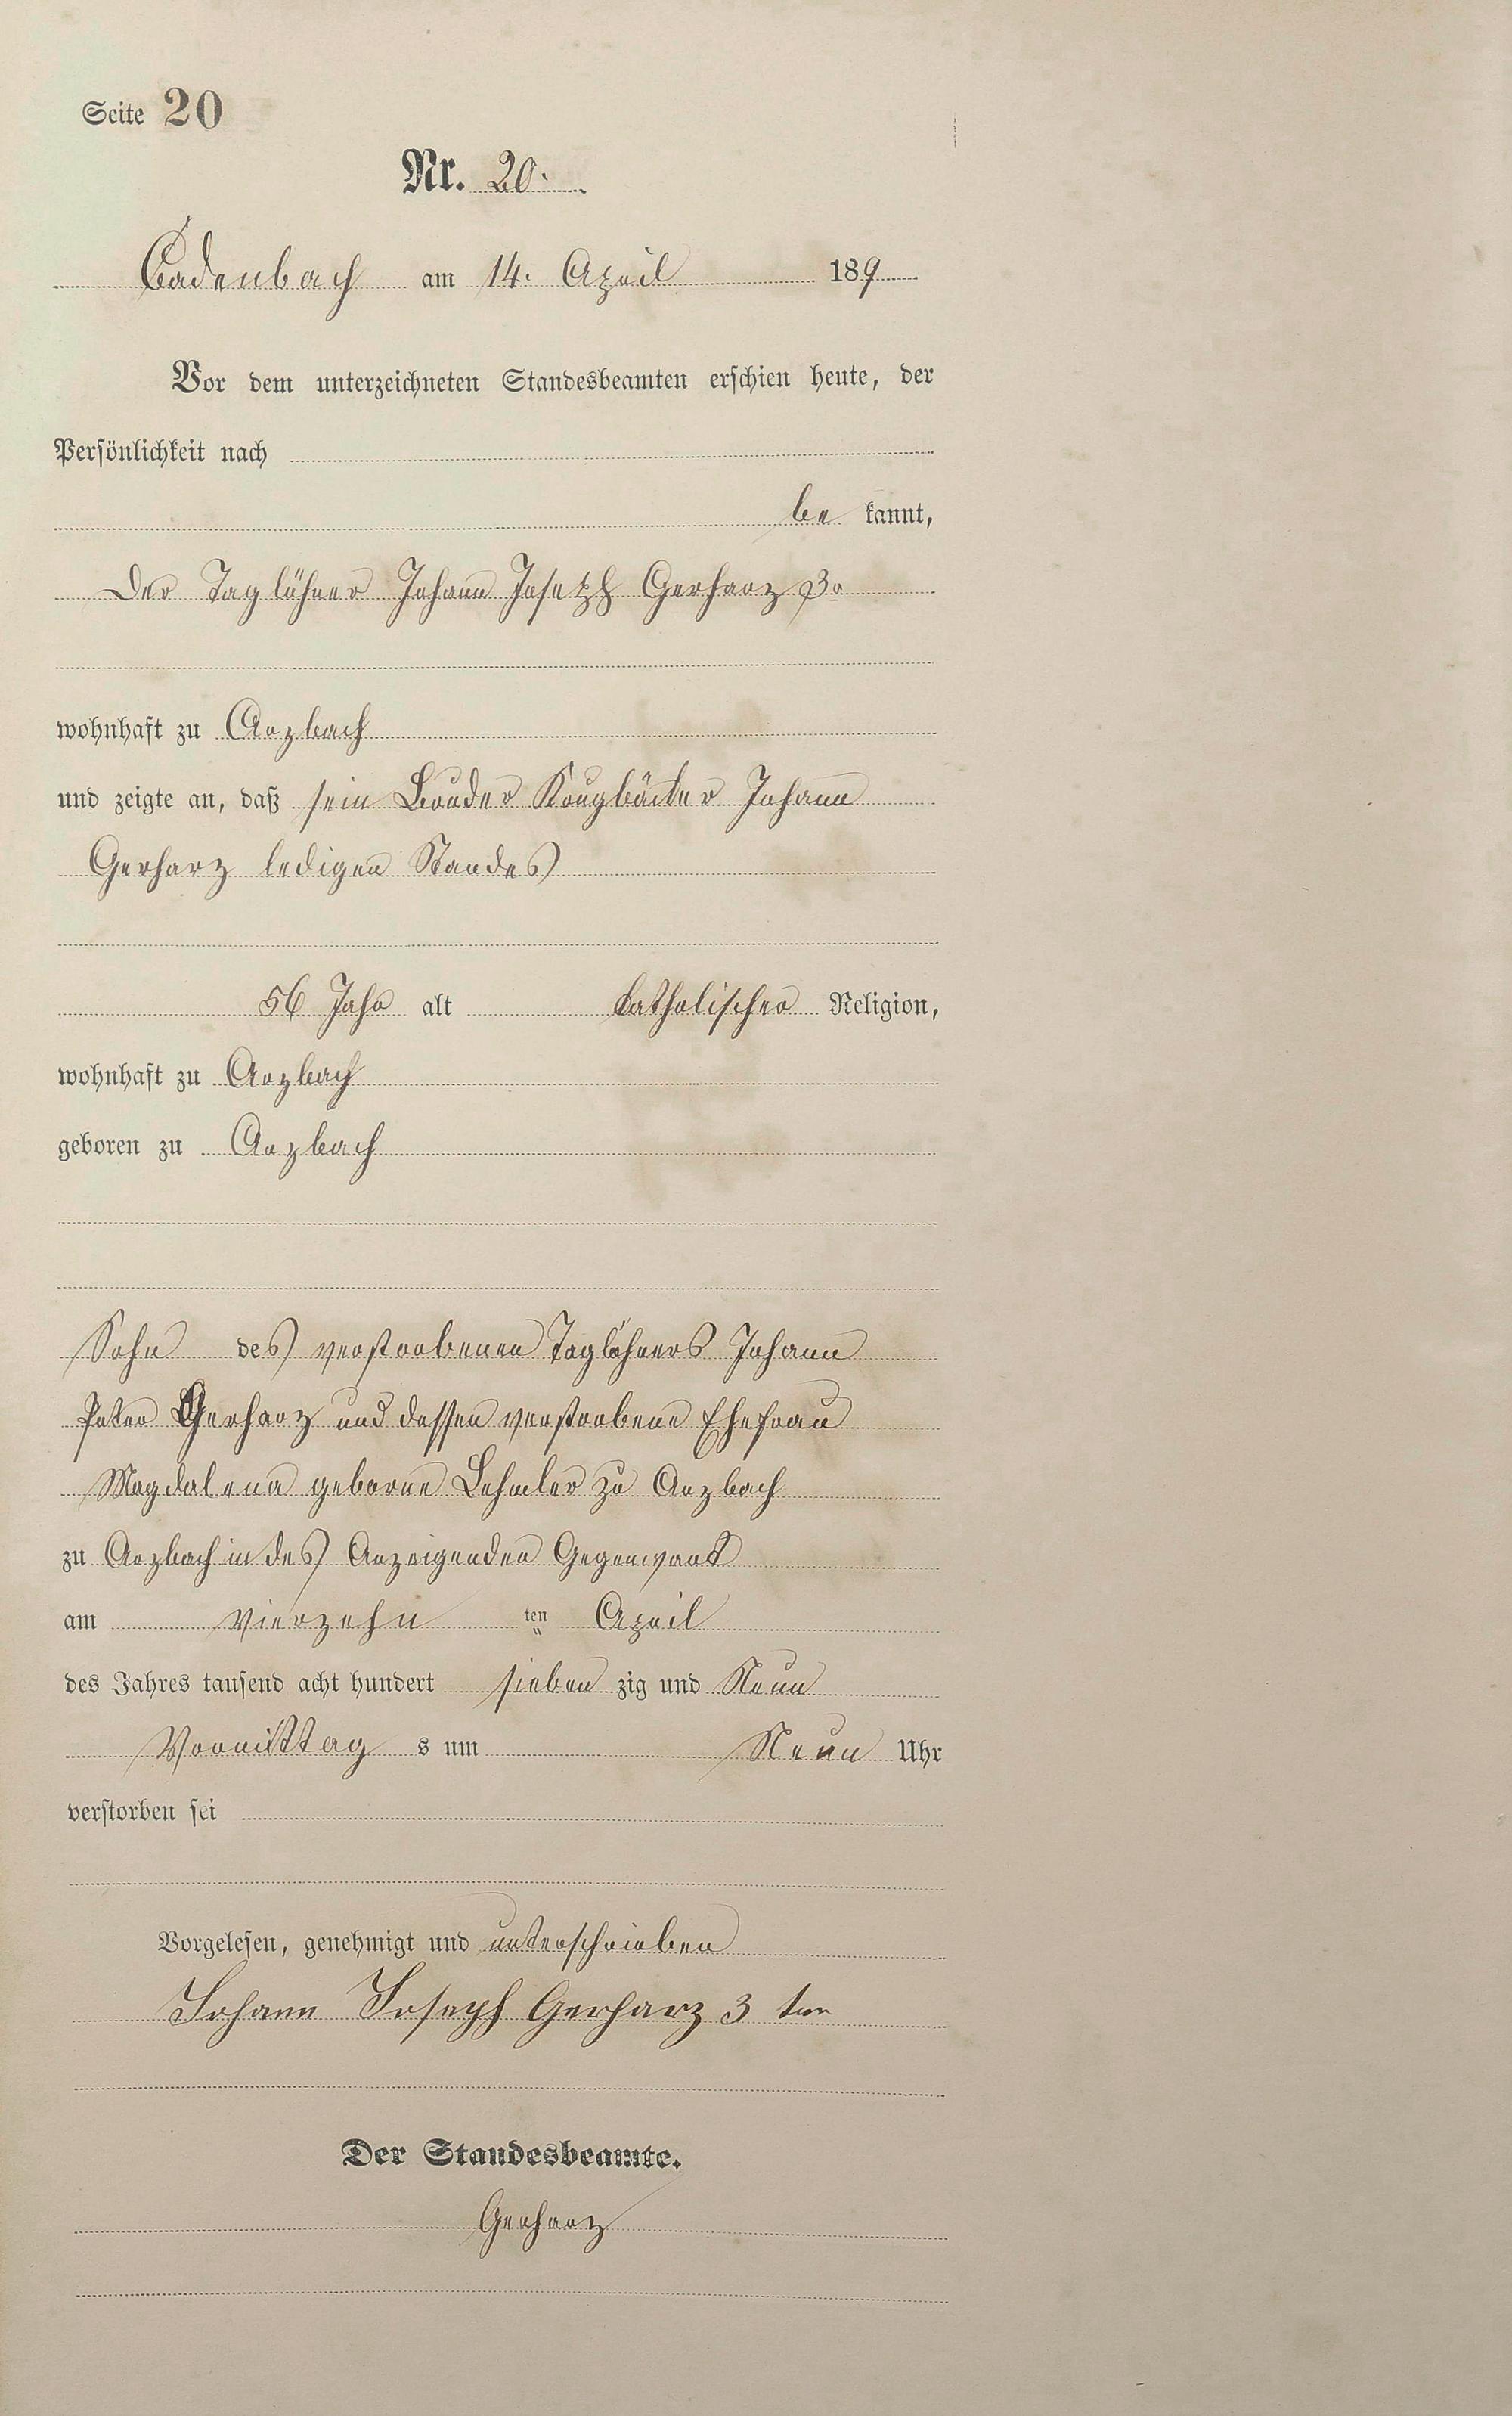 Seite 20
Nr. 20.
Cadenbach am 14. April 189
Vor dem unterzeichneten Standesbeamten erschien heute, der
Persönlichkeit nach
be kannt,
Der Taglöhner Johann Joseph Gerharz 3r
wohnhaft zu Arzbach
und zeigte an, daß sein Bruder Krugbäcker Johann
Gerharz ledigen Standes
56 Jahr alt katholischer Religion,
wohnhaft zu Arzbach
geboren zu Arzbach
Sohn des verstorbenen Taglöhners Johann
Peter Gerharz und dessen verstorbene Ehefrau
Magdalena geborne Lehmler zu Arzbach
zu Arzbach in des Anzeigenden Gegenwart
am vierzehn ten April
des Jahres tausend acht hundert sieben zig und Neun
Vormittag s um Neun Uhr
verstorben sei
Vorgelesen, genehmigt und unterschrieben
Johann Joseph Gerharz 3 ter
Der Standesbeamte.
Gerharz